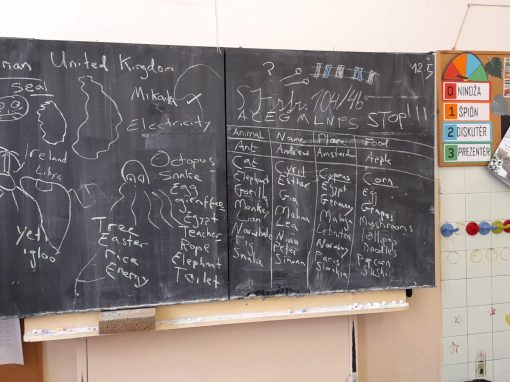 man United Kingdom
Sea
Mikak
Electricity
Ireland
Libya
Yet
igloo
Octopus
Snake
Egg
giraffe
Egypt
Teacher
Rope
Elephant
Toilet
Tree
Easter
rice
Energy
?
SJ str. 104/4b
12.5
A C E G M L N P S STOP!!!
Animal Name Place Food
Ant Andrew Amsterdam Apple
Cat Cyril Cyprus Corn
Elephant Esthar Egypt Egg
Gorilla Gia Germany Grapes
Monkey Malaysia Mushrooms
Lion Lea Lebanon Lollipop
Narwhale Norway Noodles
Pig Peter Paris Popcorn
Snake Simona Slovakia Sushi
0 NINDŽA
1 ŠPIÓN
2 DISKUTÉR
3 PREZENTÉR